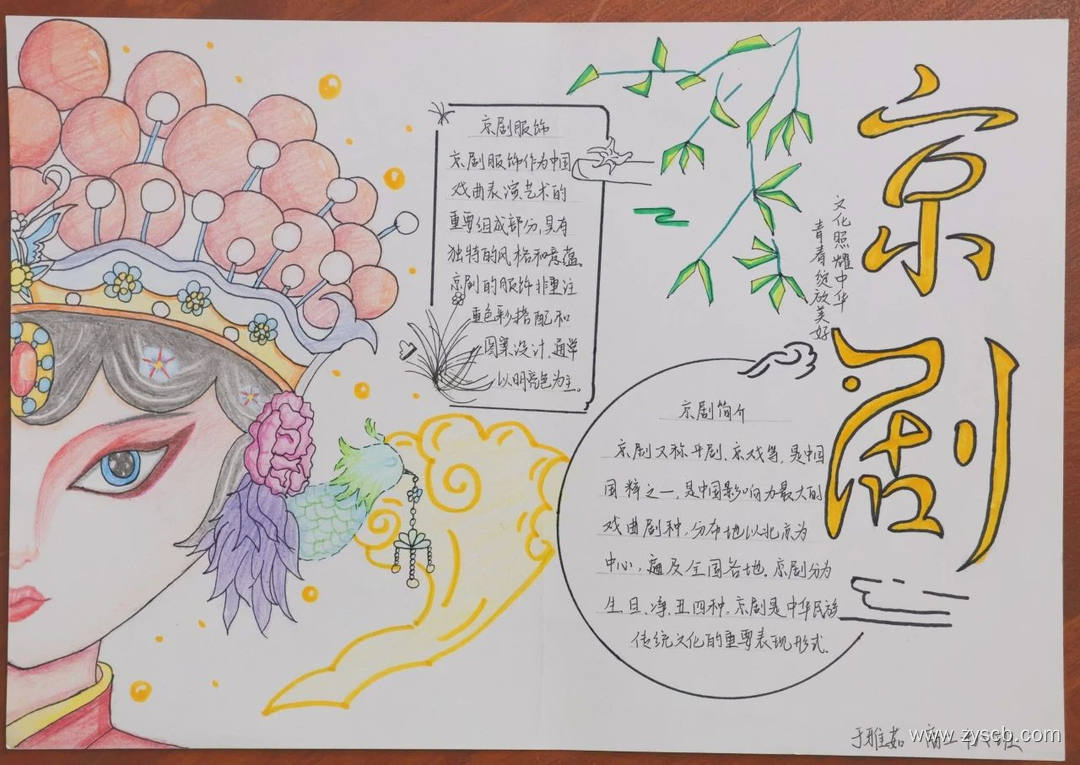 京剧
文化照耀中华
青春绽放美好
京剧服饰
京剧服饰作为中国
戏曲表演艺术的
重要组成部分,具有
独特的风格和意蕴
京剧的服饰非重注
重色彩搭配和
图案设计,通常
以明亮色为主。
京剧简介
京剧又称平剧、京戏等,是中国
国粹之一,是中国影响力最大的
戏曲剧种,分布地以北京为
中心,遍及全国各地.京剧分为
生、旦、净、丑四种,京剧是中华民族
传统文化的重要表现形式.
于雅茹
www.zyscb.com